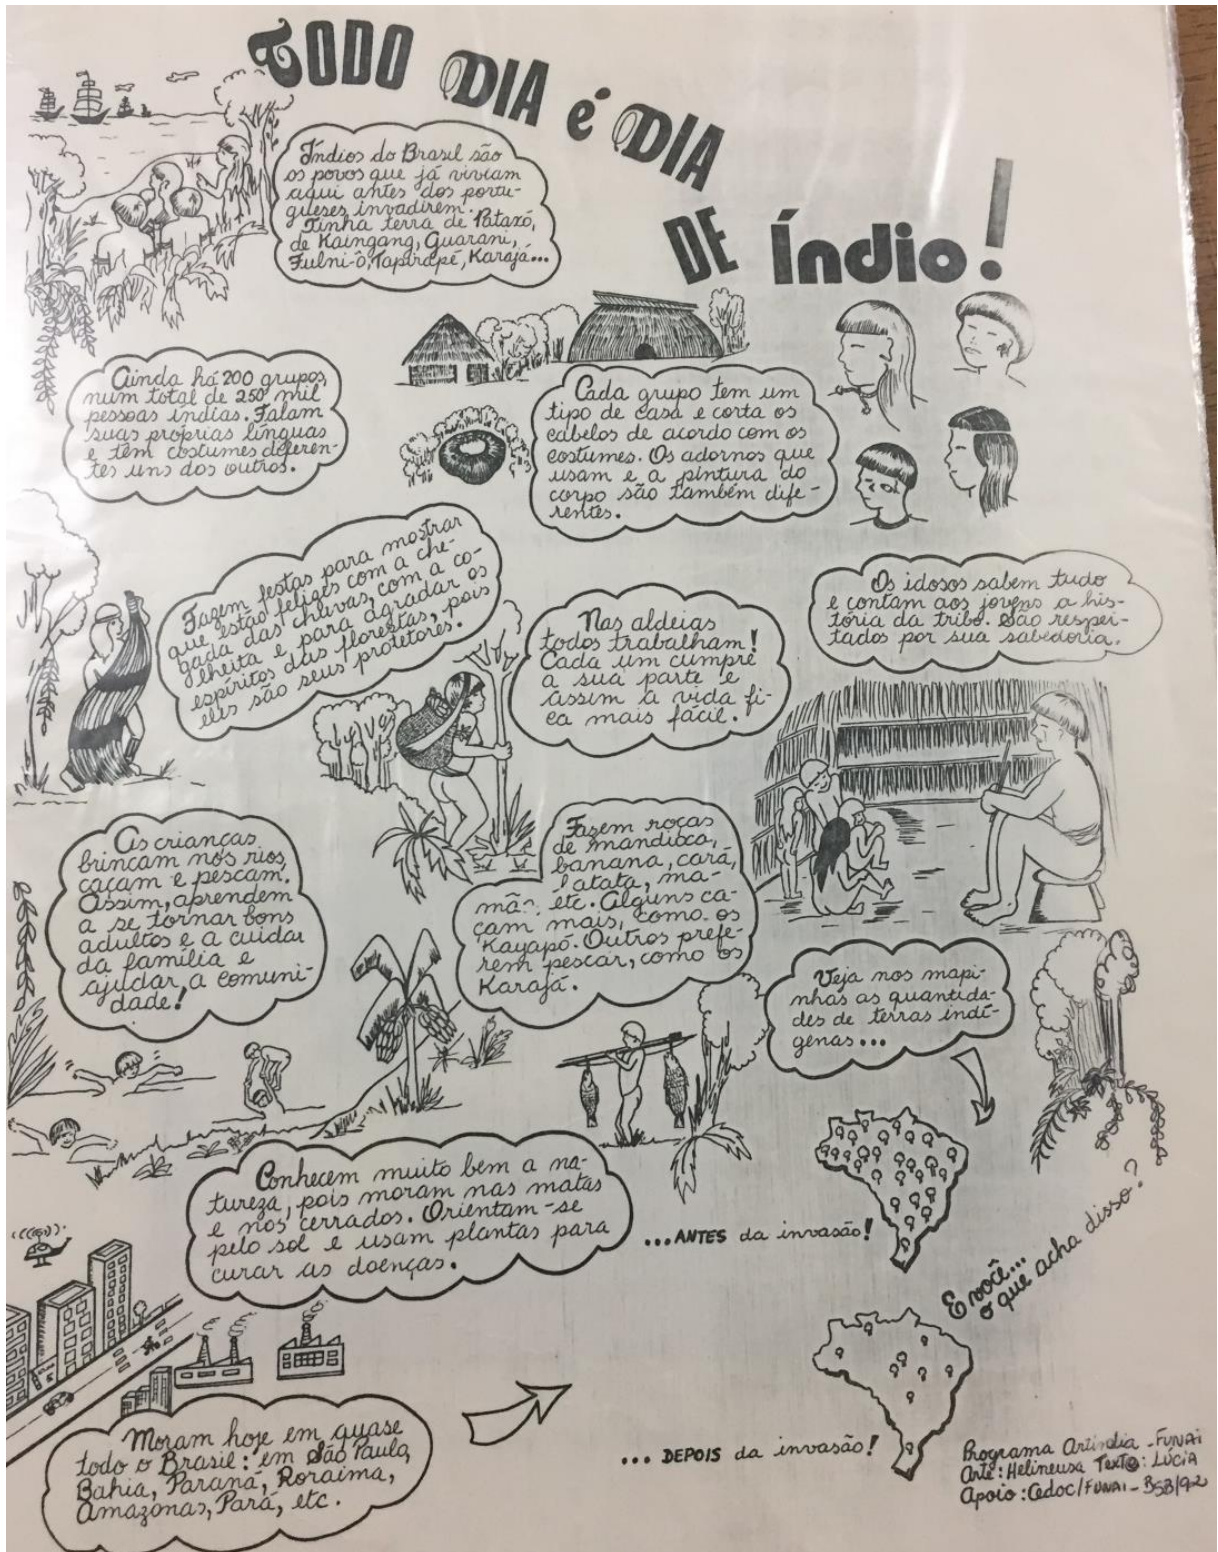 TODO DIA é DIA
DE Índio!
Índios do Brasil são
os povos que já viviam
aqui antes dos portu-
gueses invadirem.
Tinha terra de Pataxó,
de Kaingang, Guarani,
Fulni-ô, Tapirapé, Karajá...
Ainda há 200 grupos,
num total de 250 mil
pessoas índias. Falam
suas próprias línguas
e têm costumes diferen-
tes uns dos outros.
Cada grupo tem um
tipo de casa e corta os
cabelos de acordo com os
costumes. Os adornos que
usam e a pintura do
corpo são também dife-
rentes.
Fazem festas para mostrar
que estão felizes com a che-
gada das chuvas, com a co-
lheita e para agradar os
espíritos das florestas, pois
eles são seus protetores.
Nas aldeias
todos trabalham!
Cada um cumpre
a sua parte e
assim a vida fi-
ca mais fácil.
Os idosos sabem tudo
e contam aos jovens a his-
tória da tribo. São respei-
tados por sua sabedoria.
As crianças
brincam nos rios,
caçam e pescam.
Assim, aprendem
a se tornar bons
adultos e a cuidar
da família e
ajudar a comuni-
dade!
Fazem roças
de mandioca,
banana, cará,
batata, ma-
mão, etc. Alguns ca-
çam mais, como os
Kayapó. Outros prefe-
rem pescar, como os
Karajá.
Veja nos mapi-
nhas as quantida-
des de terras indí-
genas...
Conhecem muito bem a na-
tureza, pois moram nas matas
e nos cerrados. Orientam-se
pelo sol e usam plantas para
curar as doenças.
...ANTES da invasão!
E você...
o que acha disso?
Moram hoje em quase
todo o Brasil: em São Paulo,
Bahia, Paraná, Roraima,
Amazonas, Pará, etc.
...DEPOIS da invasão!
Programa Artíndia - FUNAI
Arte: Helineusa Texto: LÚCIA
Apoio: Cedoc/FUNAI - BSB/92